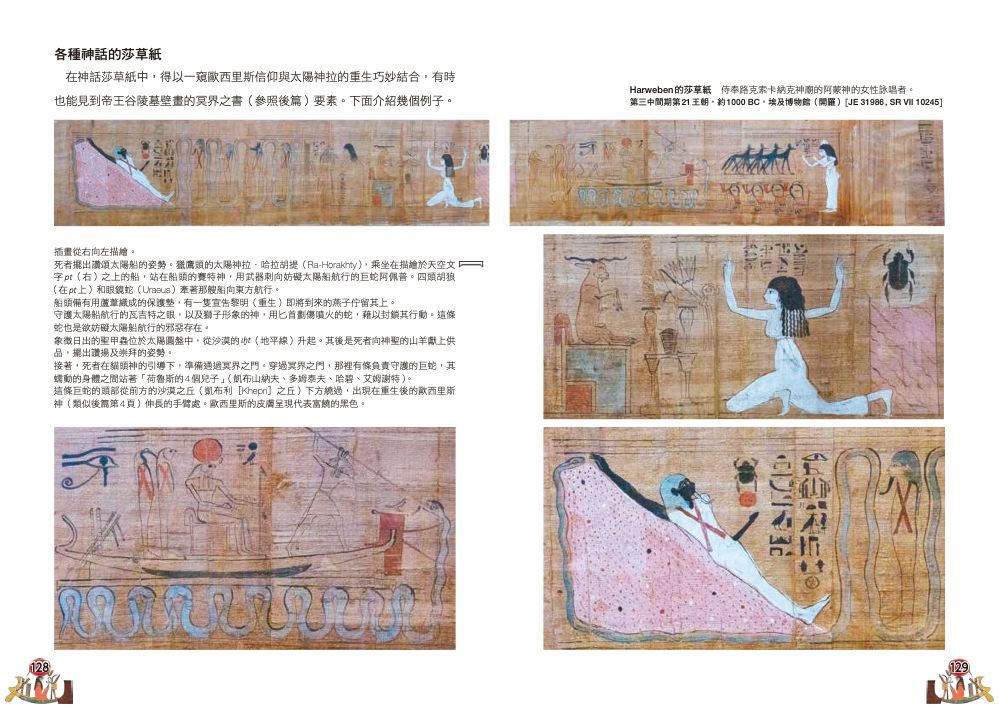 各種神話的莎草紙
在神話莎草紙中，得以一窺歐西里斯信仰與太陽神拉的重生巧妙結合，有時
也能見到帝王谷陵墓壁畫的冥界之書（參照後篇）要素。下面介紹幾個例子。
插畫從右向左描繪。
死者擺出讚頌太陽船的姿勢。獵鷹頭的太陽神拉．哈拉胡提（Ra-Horakhty），乘坐在描繪於天空文
字pt（右）之上的船，站在船頭的賽特神，用武器刺向妨礙太陽船航行的巨蛇阿佩普。四頭胡狼
（在pt上）和眼鏡蛇（Uraeus）牽著那艘船向東方航行。
船頭備有用蘆葦織成的保護墊，有一隻宣告黎明（重生）即將到來的燕子佇留其上。
守護太陽船航行的瓦吉特之眼，以及獅子形象的神，用匕首劃傷噴火的蛇，藉以封鎖其行動。這條
蛇也是欲妨礙太陽船航行的邪惡存在。
象徵日出的聖甲蟲位於太陽圓盤中，從沙漠的iȝḫt（地平線）升起。其後是死者向神聖的山羊獻上供
品，擺出讚揚及崇拜的姿勢。
接著，死者在貓頭神的引導下，準備通過冥界之門。穿過冥界之門，那裡有條負責守護的巨蛇，其
蠕動的身體之間站著「荷魯斯的4個兒子」（凱布山納夫、多姆泰夫、哈碧、艾姆謝特）。
這條巨蛇的頭部從前方的沙漠之丘（凱布利［Khepri］之丘）下方繞過，出現在重生後的歐西里斯
神（類似後篇第4頁）伸長的手臂處。歐西里斯的皮膚呈現代表富饒的黑色。
128
Harweben的莎草紙　侍奉路克索卡納克神廟的阿蒙神的女性詠唱者。
第三中間期第21王朝，約1000 BC，埃及博物館（開羅）[JE 31986, SR VII 10245]
129